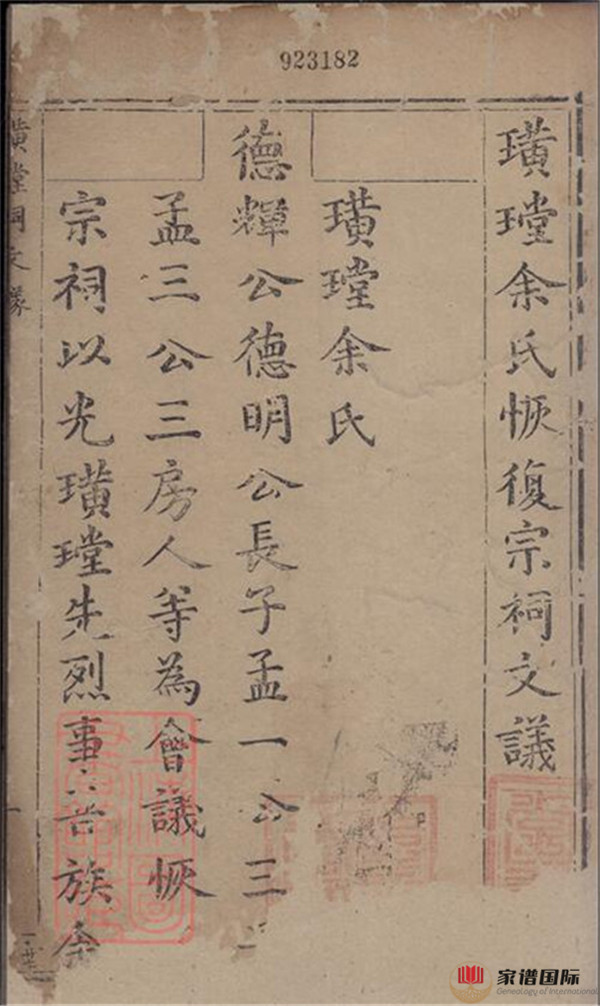 923182
璜瑝余氏恢復宗祠文議
璜瑝余氏
德輝公德明公長子孟一公三
孟三公三房人等為會議恢
宗祠以光璜瑝先烈事
族余
璜瑝祠文議
家谱国际
Genealogy of International